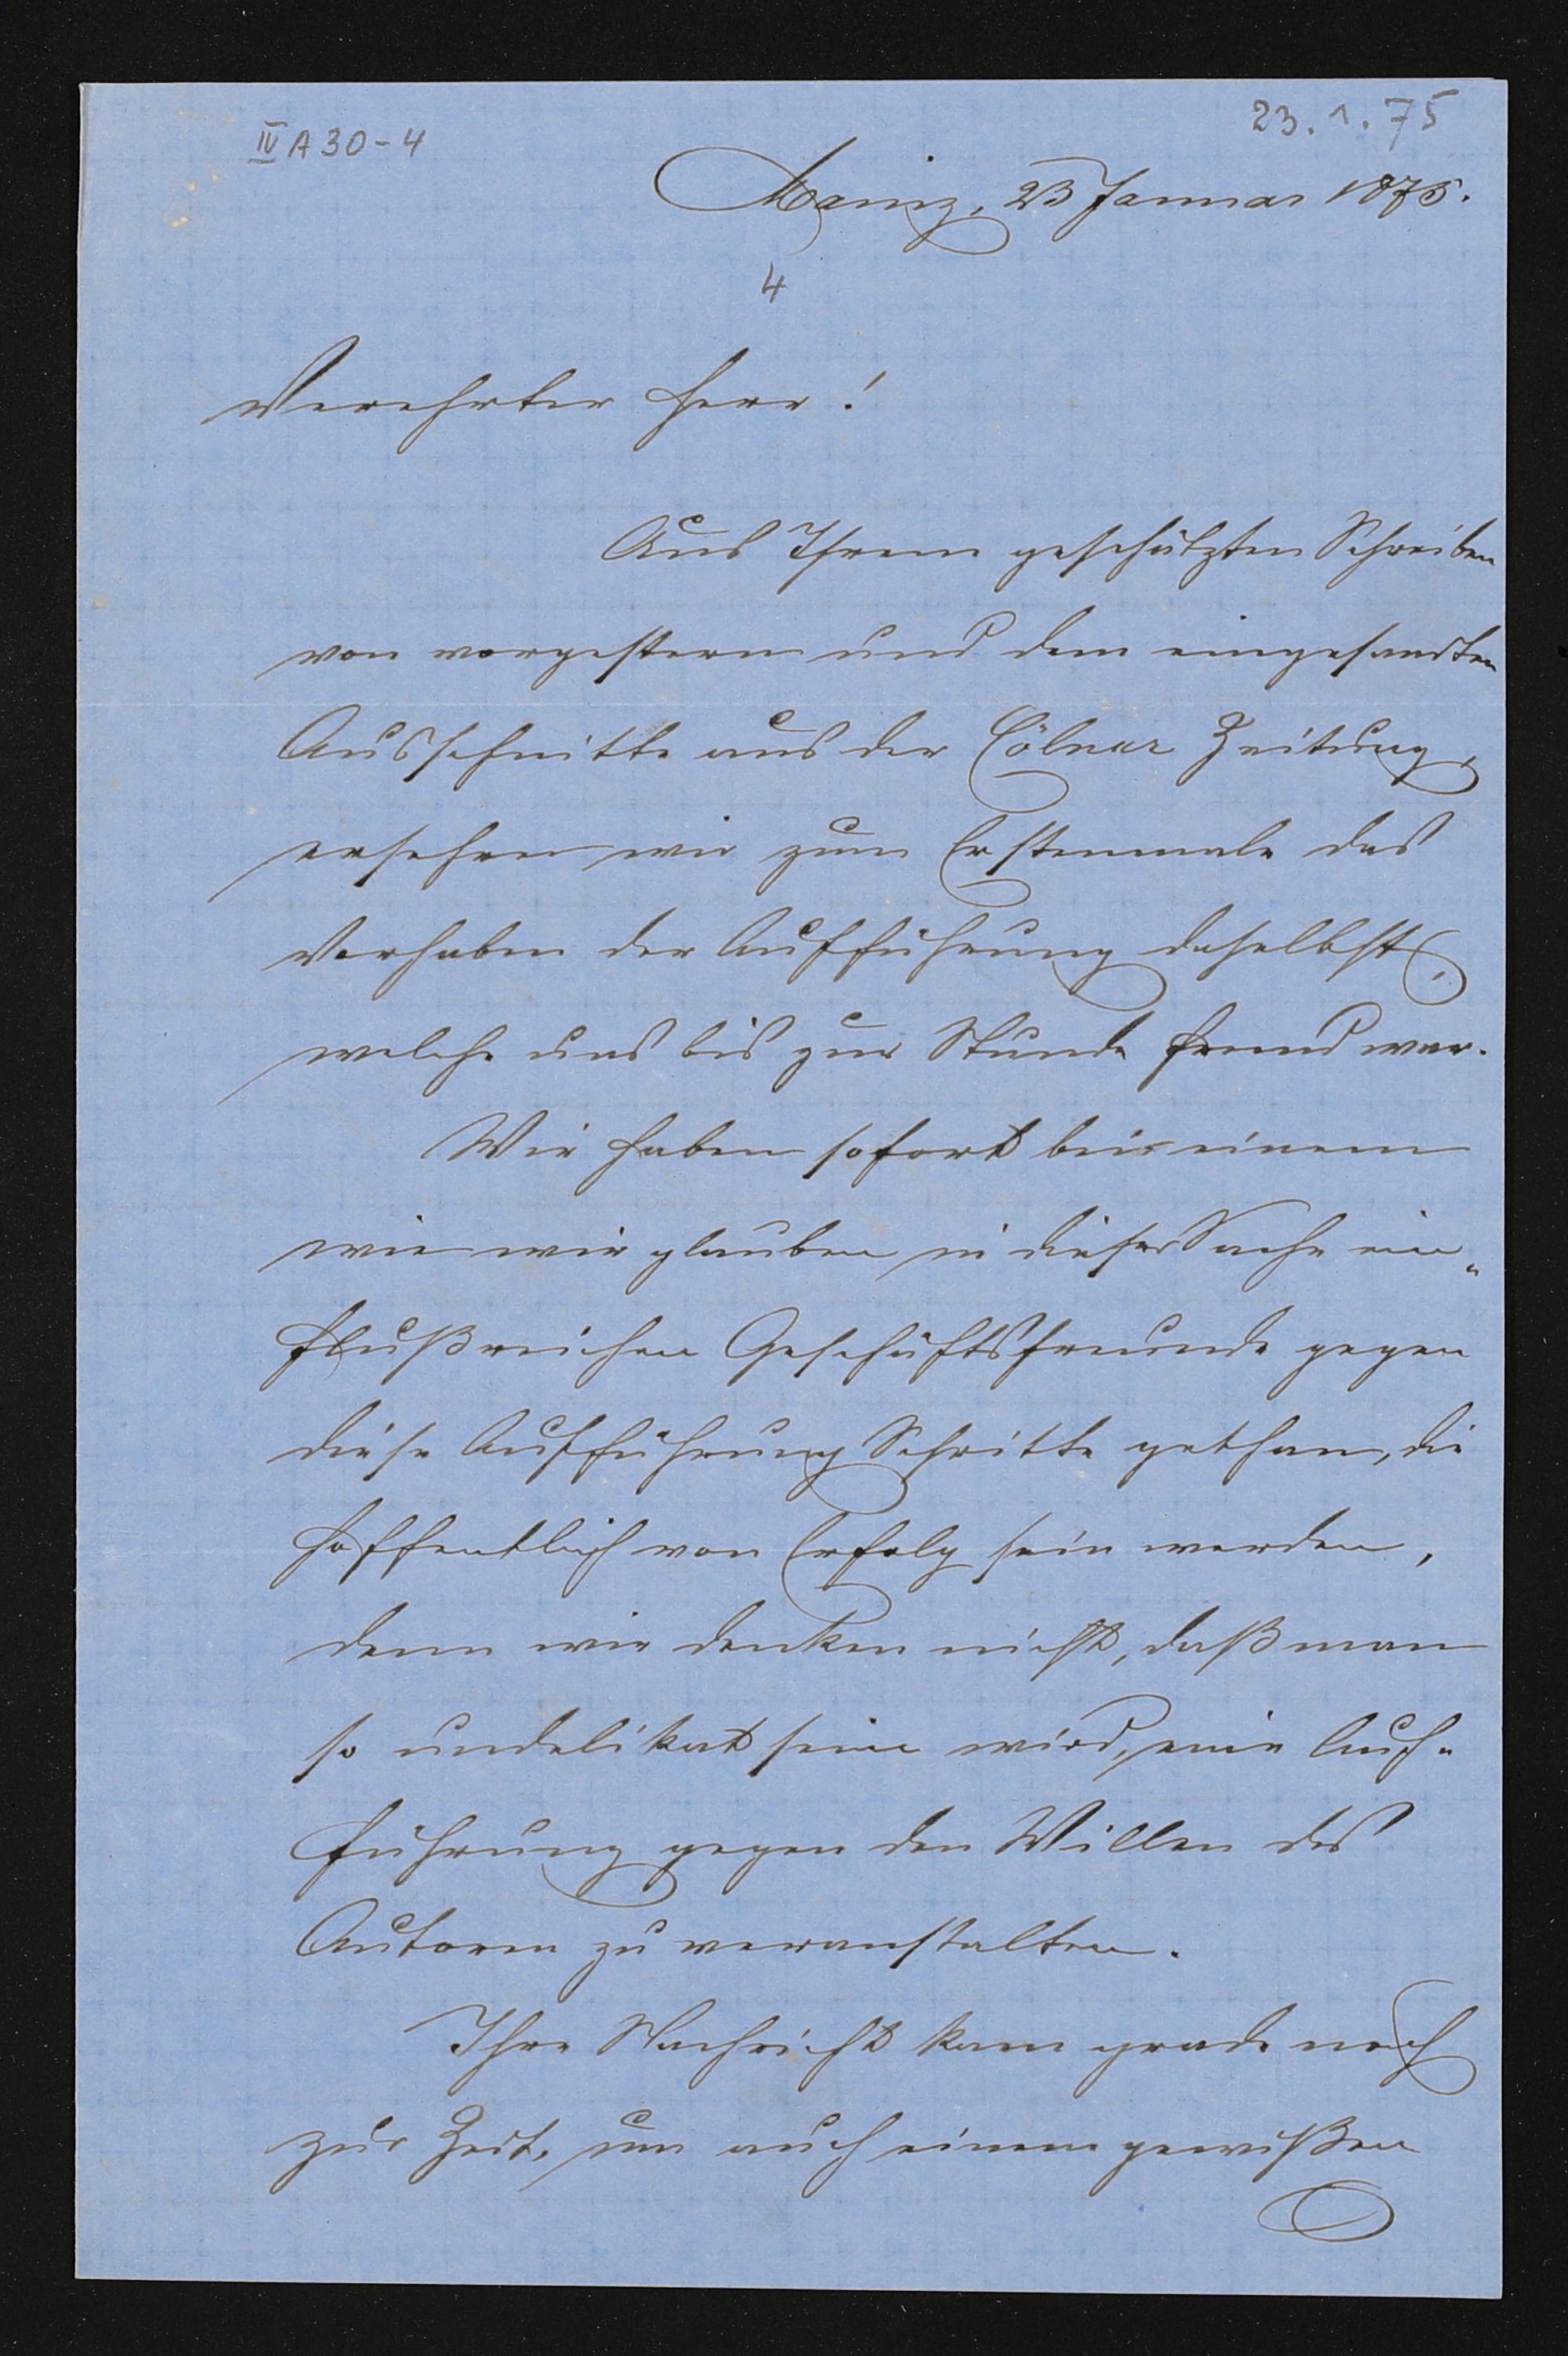 IV A 30-4
23.1.75
Mainz, 23 Januar 1875.
4
Verehrter Herr!
Aus Ihrem geschätzten Schreiben
von vorgestern und dem eingesandten
Ausschnitte aus der Cölner Zeitung,
ersehen wir zum Erstenmale das
Vorhaben der Aufführung daselbst,
welche uns bis zur Stunde fremd war.
Wir haben sofort bei einem
wie wir glauben in dieser Sache ein„
flußreichen Geschäftsfreunde gegen
diese Aufführung Schritte gethan, die
hoffentlich von Erfolg sein werden,
denn wir denken nicht, daß man
so undelikat sein wird, eine Auf„
führung gegen den Willen des
Autoren zu veranstalten.
Ihre Nachricht kam grade noch
zur Zeit, um auch einem gewißen